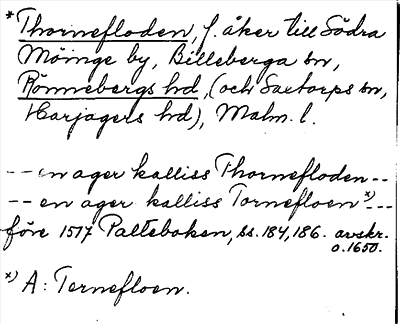 *Thornefloden, f. åker till Södra
Möinge by, Billeberga sn,
Rönnebergs hd, (och Saxtorps sn,
Harjagers hd), Malm. l.
-- en ager kalliss Thornefloden --
-- en ager kalliss Tornefloen *) --
före 1517 Palteboken, ss. 184, 186. avskr.
o. 1650.
*) A: Ternefloen.